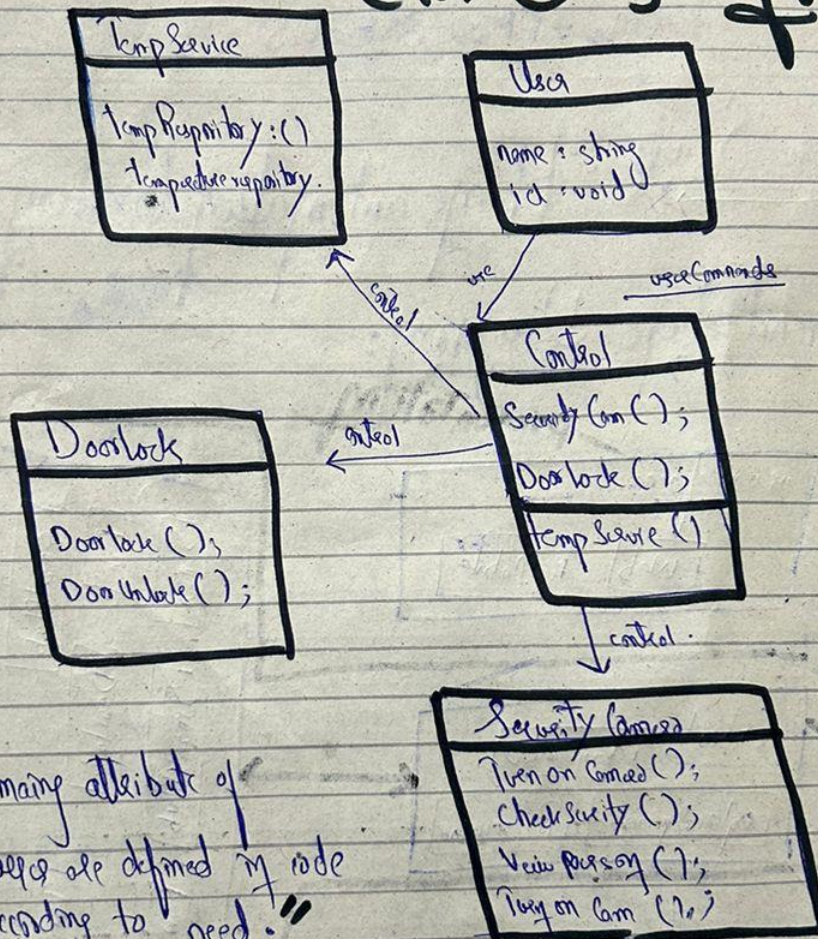 TempService
tempRespository:()
temperature repository.
User
name : string
id : void
use
control
userCommands
Control
Security Cam ();
Doorlock ();
temp Servie ()
control
Doorlock
Doorlock ();
Door Unlock ();
control.
Security Camera
Turn on Camera ();
Check Security ();
View person ();
Turn on Cam ();
maing attribute of
are defined in code
ccording to need."